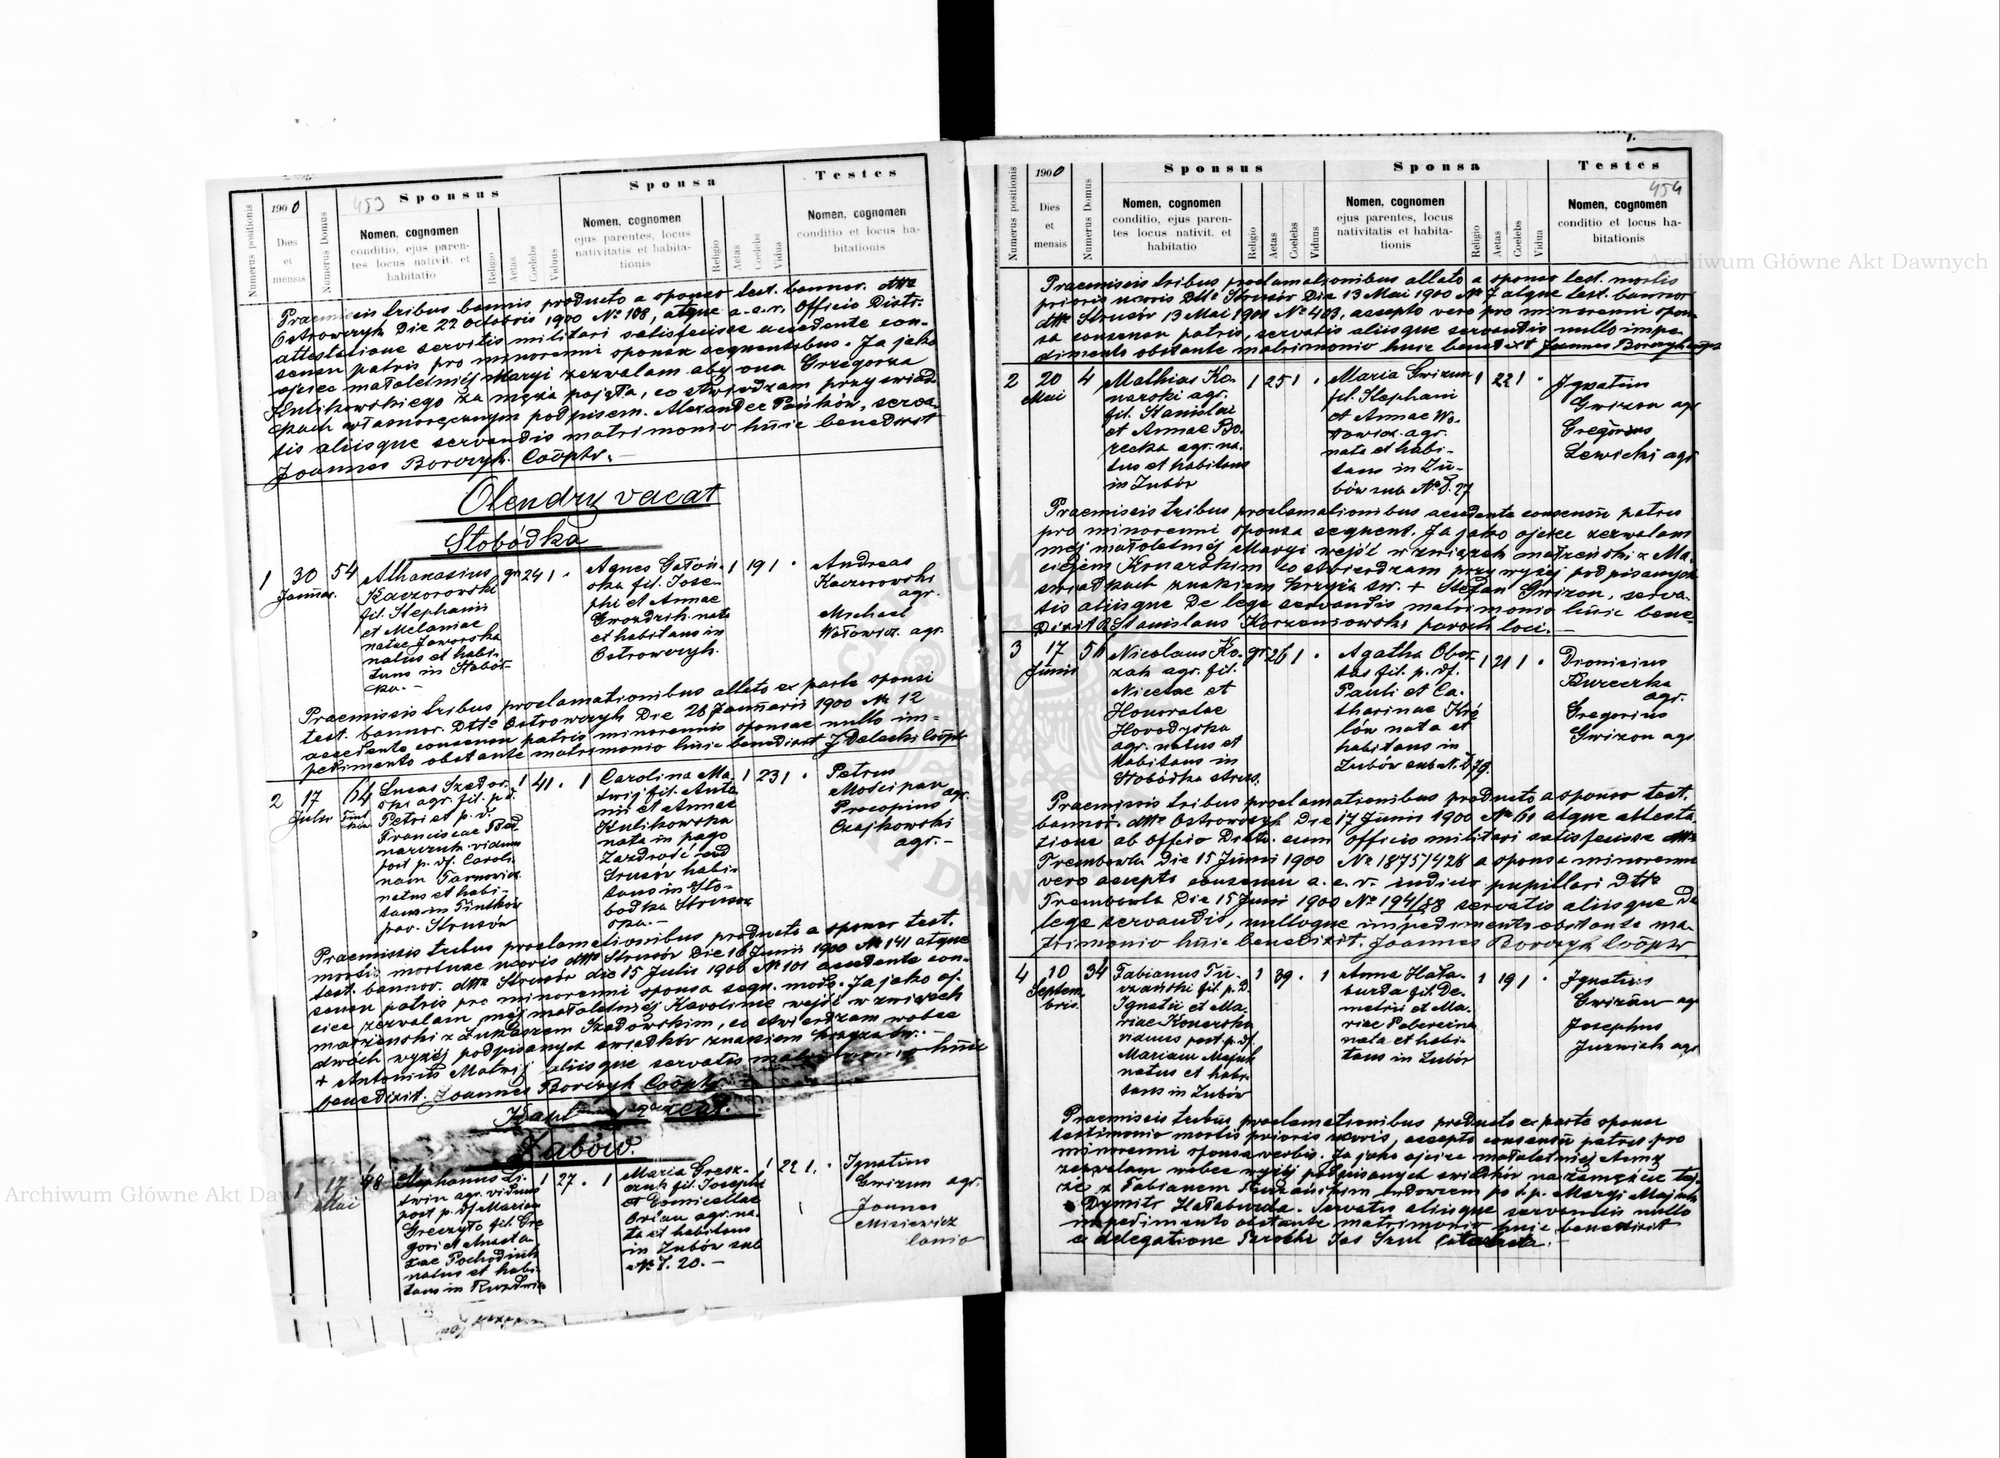 Archiwum Główne Akt Dawnych
Archiwum Główne Akt Dawnych
453
Numerus positionis
1900
Dies
et
mensis
Numerus Domus
Sponsus
Nomen, cognomen
conditio, ejus paren-
tes locus nativit. et
habitatio
Religio
Aetas
Coelebs
Viduus
Sponsa
Nomen, cognomen
ejus parentes, locus
nativitatis et habita-
tionis
Religio
Aetas
Coelebs
Vidua
Testes
Nomen, cognomen
conditio et locus ha-
bitationis
Praemissis tribus bannis producto a sponso test. bannor. dtto
Ostrowczyk die 22 octobris 1900 No 108, atque a.e.r. Officii Distr.
attestatione servitii militari satisfecisse accedente con-
sensu patris pro minorenni sponsa sequentibus. Ja jako
ojciec małoletniéj Maryi zezwalam aby ona Grzegorza
Kulikowskiego za męża pojęła, co stwierdzam przy świad-
kach własnoręcznym podpisem. Alexander Pańków, serva-
tis aliisque servandis matrimonio huic benedixit
Joannes Borczyk Coöptr.
Olendry vacat
Słobódka
1
30
Januar.
54
Athanasius
Kaczorowski
fil. Stephani
et Melaniae
natae Jaworska
natus et habi-
tans in Słobód-
ka.
gr
24
1
Agnes Gałoń-
ska fil. Jose-
phi et Annae
Gwozdzik nata
et habitans in
Ostrowczyk.
1
19
1
Andreas
Kaczorowski
agr.
Michael
Wołowicz agr.
Praemissis tribus proclamationibus allato ex parte sponsi
test. bannor. Dtto Ostrowczyk die 28 Januarii 1900 No 12
accedente consensu patris minorennis sponsae nullo im-
pedimento obstante matrimonio huic benedixit J Delecki Coöptr
2
17
Julii
64
Lucas Szador-
ski agr. fil. p.d.
Petri et p.d.
Franciscae Bed-
narczuk viduus
post p. df. Caroli-
nam Tarnowicz
natus et habi-
tans in Tiutków
par. Strusów
1
41
1
Carolina Ma-
twij fil. Anto-
nii et Annae
Kulikowska
nata in pago
Zazdrość ad
Strusów habi-
tans in Sło-
bodka Strusow-
ska.
1
23
1
Petrus
Mościpan
agr.
Procopius
Czajkowski
agr.
Praemissis tribus proclamationibus producto a sponso test.
mortis mortuae uxoris dtto Strusów Die 16 Junii 1900 No 141 atque
test. bannor. dtto Strusów die 15 Julii 1900 No 101 accedente con-
sensu patris pro minorenni sponsa sequ. modo. Ja jako oj-
ciec zezwalam méj małoletniéj Karolinie wejść w związek
małżeński z Łukaszem Szadowskim, co stwierdzam wobec
dwóch wyżéj podpisanych świadków znakiem krzyża św.
+ Antonius Matwij aliisque servatis matrimonio huic
benedixit. Joannes Borczyk Coöptr.
Zubów.
1
17
Mai
68
Stephanus Li-
twin agr. viduus
post p. df Mariam
Greczyło fil. Gre-
gorii et Anasta-
ziae Pochodiuk
natus et habi-
tans in
1
27
1
Maria Gresz-
czuk fil. Josephi
et Domicellae
Orlau agr. na-
ta et habitans
in Zubów sub
No d. 20.
1
22
1
Ignatius
Gwizun agr.
Joannes
Misiewicz
454
Numerus positionis
1900
Dies
et
mensis
Numerus Domus
Sponsus
Nomen, cognomen
conditio, ejus paren-
tes locus nativit. et
habitatio
Religio
Aetas
Coelebs
Viduus
Sponsa
Nomen, cognomen
ejus parentes, locus
nativitatis et habita-
tionis
Religio
Aetas
Coelebs
Vidua
Testes
Nomen, cognomen
conditio et locus ha-
bitationis
Praemissis tribus proclamationibus allato a sponso test. mortis
prioris uxoris Dtto Strusów Die 13 Mai 1900 No 7 atque test. bannor
dtto Strusów 13 Mai 1900 No 403, accepto vero pro minorenni spon-
sa consensu patris, servatis aliisque servandis nullo impe-
dimento obstante matrimonio huic benedixit Joannes Borczyk
2
20
Mai
4
Mathias Ko-
narski agr.
fil. Stanislai
et Annae Bo-
recka agr. na-
tus et habitans
in Zubów
1
25
1
Maria Gwizun
fil. Stephani
et Annae Wo-
łowicz agr.
nata et habi-
tans in Zu-
bów sub No d. 27
1
22
1
Ignatius
Gwizon agr
Gregorius
Lewicki agr
Praemissis tribus proclamationibus accedente consensu patris
pro minorenni sponsa sequent. Ja jako ojciec zezwalam
méj małoletniéj Maryi wejść w związek małżeński z Ma-
ciejem Konarskim co stwierdzam przy wyżéj podpisanych
świadkach znakiem krzyża św. + Stefan Gwizon, serva-
tis aliisque de lege servandis matrimonio huic bene-
dixit Stanislaus Korzeniowski paroch loci.
3
17
Junii
50
Nicolaus Ko-
zak agr. fil.
Nicetae et
Honoratae
Howodyska
agr. natus et
habitans in
Słobódka strus.
gr
26
1
Agatha Obor-
tas fil. p. df.
Pauli et Ca-
tharinae Kró-
lów nata et
habitans in
Zubów sub N. D 79.
1
21
1
Dionisius
Bureczka
agr.
Gregorius
Gwizon agr
Praemissis tribus proclamationibus producto a sponso test.
bannor. dtto Ostrowczyk Die 17 Junii 1900 No 61 atque attesta-
tione ab officio Distr. eum officio militari satisfecisse dtto
Trembowla Die 15 Junii 1900 No 18757/428 a sponsa minorenni
vero accepto consensu a.e.v. iudicii pupillari Dtto
Trembowla Die 15 Junii 1900 No 194/88 servatis aliisque De
lege servandis, nulloque impedimento obstante ma-
trimonio huic benedixit. Joannes Borczyk Coöptr
4
10
Septem-
bris
34
Fabianus Tu-
rzański fil. p. D.
Ignatii et Ma-
riae Konarska
viduus post p. df.
Mariam Majuk
natus et habi-
tans in Zubów
1
39
1
Anna Hała-
burda fil. De-
metrii et Ma-
riae Pobereżna
nata et habi-
tans in Zubów
1
19
1
Ignatius
Gwizun agr
Josephus
Juzwiak agr
Praemissis tribus proclamationibus producto ex parte sponsi
testimonio mortis prioris uxoris, accepto consensu patris pro
minorenni sponsa verbis. Ja jako ojciec małoletniéj Anny
zezwalam wobec wyżéj podpisanych świadków na zamęście téj-
że z Fabianem Turzańskim wdowcem po ś.p. Maryi Majuk
Dymitr Hałaburda. Servatis aliisque servandis nullo
impedimento obstante matrimonio huic benedixit
e delegatione Parochi Jos Szul